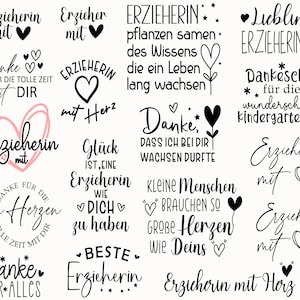 Erzieher
mit
Erzieher
mit
ERZIEHERIN
pflanzen samen
des Wissens
die ein Leben
lang wachsen
Lieblin
ERZIEHERIN
anke
FÜR DIE TOLLE ZEIT
MIT DIR
ERZIEHERIN
mit Herz
Dankesch
für die
wundersch
kindergarten
Erzieherin
mit
Danke,
DASS ICH BEI DIR
WACHSEN DURFTE
Glück
IST, EINE
Erzieherin
WIE
DICH
zu haben
Erzie
mit
DANKE FÜR DIE
Herzen
TOLLE ZEIT MIT DIR
KLEINE Menschen
BRAUCHEN SO
Große Herzen
WIE Deins
Erzie
mit
anke
FÜR ALLES
BESTE
Erzieherin
Erzieherin mit Herz